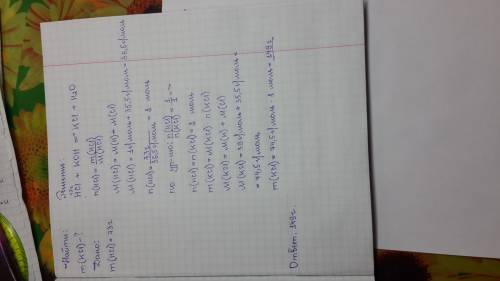 Найти:
m(KCl) - ?
Дано:
m(HCl) = 73г
Решение
HCl + KOH = KCl + H2O
n(HCl) = m(HCl) / M(HCl)
M(HCl) = M(H) + M(Cl)
M(HCl) = 1г/моль + 35,5г/моль = 36,5г/моль
n(HCl) = 73г / 36,5г/моль = 2 моль
по ур-ию: n(HCl) / n(KCl) = 1/1 =>
n(HCl) = n(KCl) = 2 моль
m(KCl) = M(KCl) · n(KCl)
M(KCl) = M(K) + M(Cl)
M(KCl) = 39г/моль + 35,5г/моль =
= 74,5г/моль
m(KCl) = 74,5г/моль · 2 моль = 149г
Ответ: 149г.